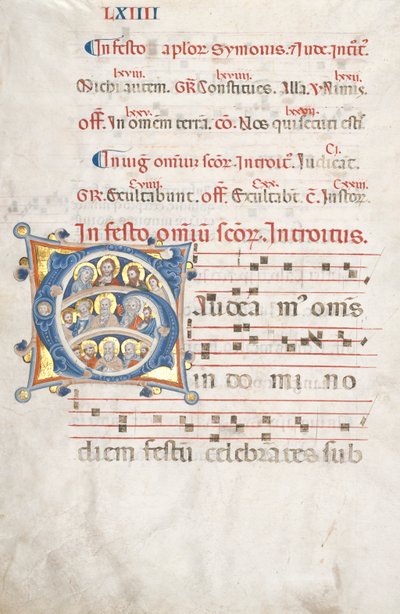 LXIIII
In festo aplor. Symonis. ⁊ Jude. Introit.
lxviii. lxviiii. lxxii.
Michi autem. GR. Constitues. Alla. V. Nimis.
lxxv.
off. In omem terra. co. Nos qui secuti esti
Cj.
In uig. omniu scor. Introit. Iudicāt.
Cviiii. Cxx. Cxxiii.
GR. Exultabunt. off. Exultabt. c. Iustor.
In festo omiu scor. Introitus.
Gaudeam' oms
in do mi no
diem festū celebrantes sub